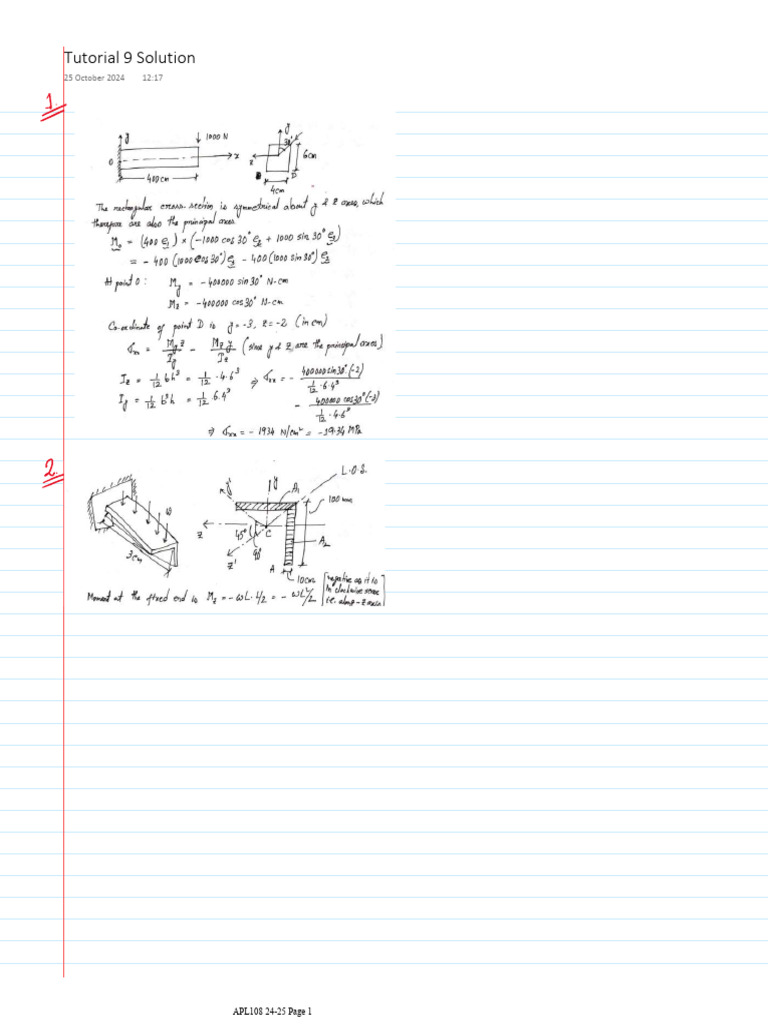 Tutorial 9 Solution
25 October 2024 12:17
1.
y
1000 N
O
x
400 cm
y
30°
z
6cm
D
4cm
The rectangular cross-section is symmetrical about y & z axes, which
therefore are also the principal axes.
M₀ = (400 e₁) × (-1000 cos 30° e₂ + 1000 sin 30° e₃)
= - 400 (1000 cos 30°) e₃ - 400 (1000 sin 30°) e₂
At point O: My = -400000 sin 30° N-cm
Mz = -400000 cos 30° N-cm
Co-ordinate of point D is y = -3, z = -2 (in cm)
σxx = My z / Iy - Mz y / Iz (since y & z are the principal axes)
Iz = 1/12 bh³ = 1/12 · 4·6³ ⇒ σxx = - 400000 sin 30° (-2) / 1/12 · 6·4³
Iy = 1/12 b³h = 1/12 · 6·4³ - 400000 cos 30° (-3) / 1/12 · 4·6³
⇒ σxx = - 1934 N/cm² = -19.34 MPa
2.
ω
3 cm
y'
y
A₁
L.O.S.
100 mm
z
45°
C
A₂
z'
A
10cm
Moment at the fixed end is Mz = - ωL · L/2 = - ωL²/2 [negative as it is
in clockwise sense
i.e. along - z axis]
APL108 24-25 Page 1